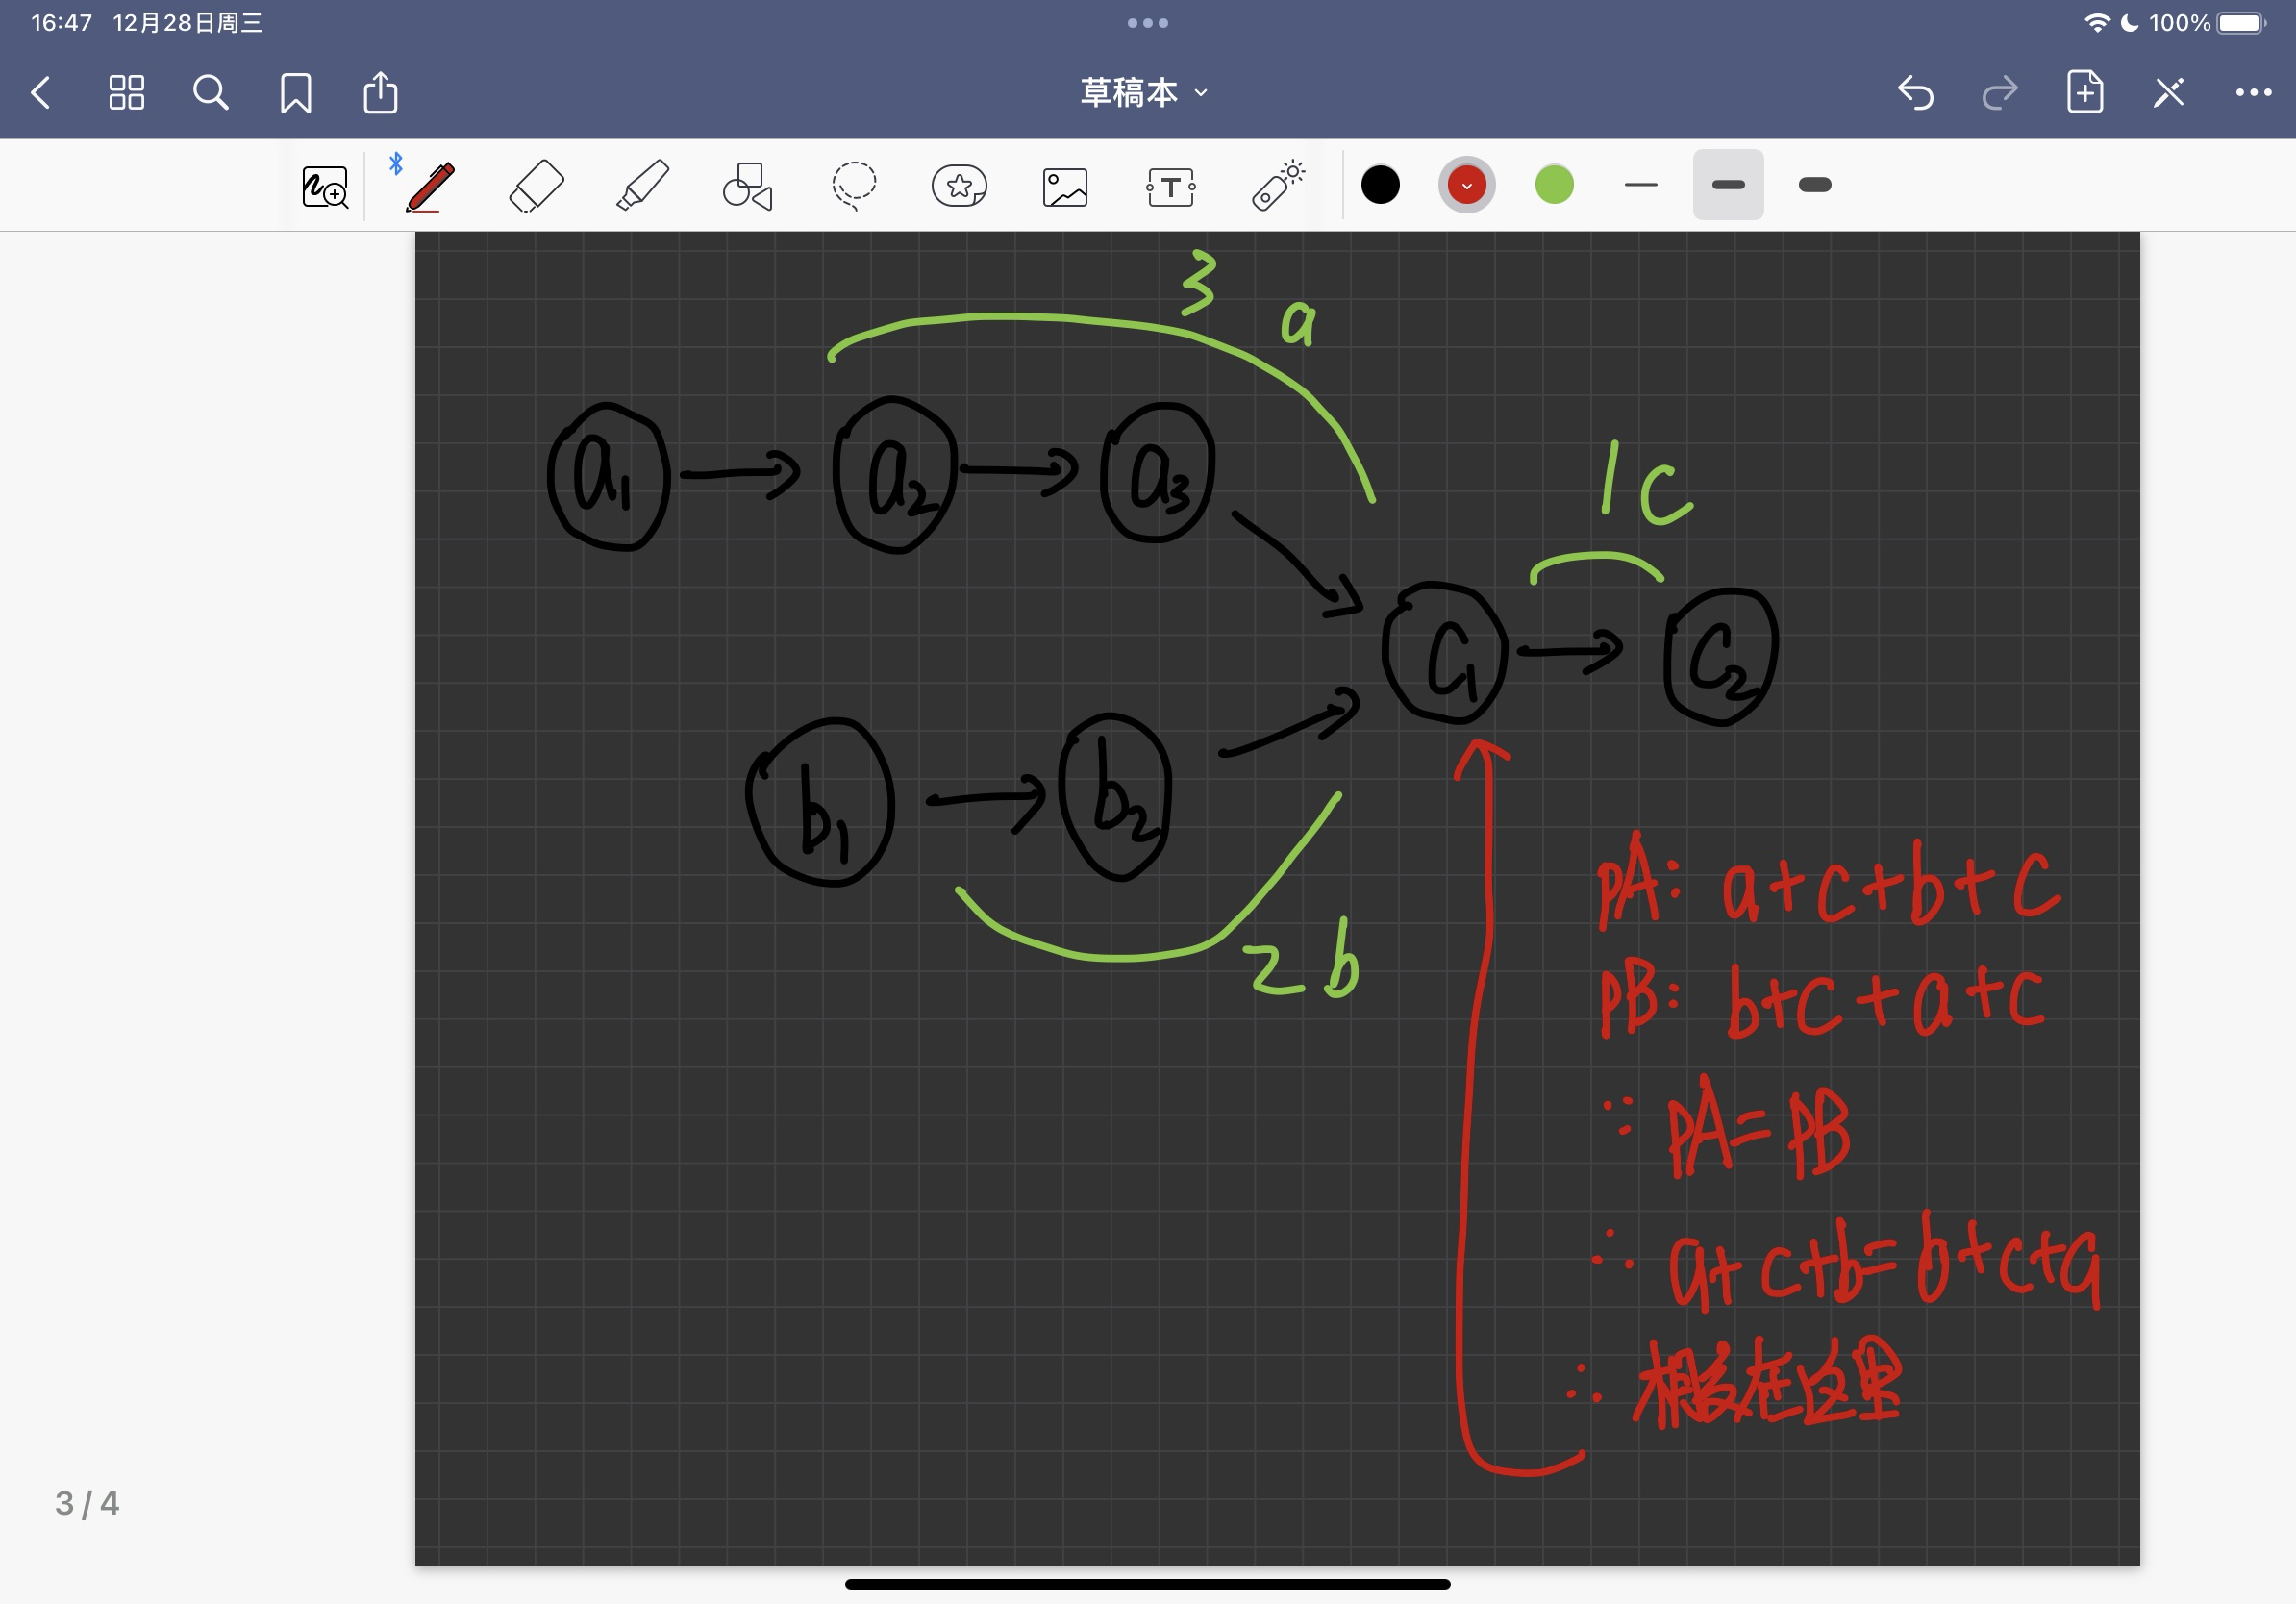 16:47 12月28日周三
100%
草稿本
3
a
1c
a1 a2 a3
c1 c2
b1 b2
2 b
PA: a+c+b+c
PB: b+c+a+c
∵ PA=PB
∴ a+c+b=b+c+a
∴ 根在这里
3/4